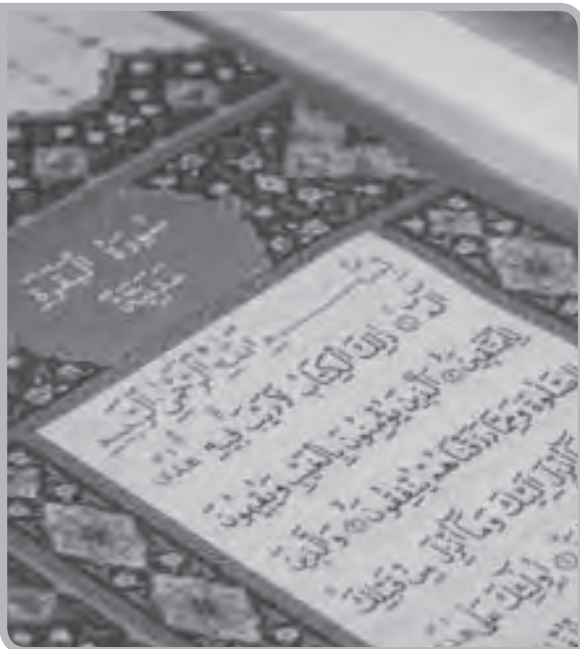 سُورَةُ الْبَقَرَةِ
بِسْمِ اللَّهِ الرَّحْمَٰنِ الرَّحِيمِ
الٓمٓ ۝ ذَٰلِكَ الْكِتَابُ لَا رَيْبَ فِيهِ هُدًى
لِلْمُتَّقِينَ ۝ الَّذِينَ يُؤْمِنُونَ بِالْغَيْبِ وَيُقِيمُونَ
الصَّلَاةَ وَمِمَّا رَزَقْنَاهُمْ يُنْفِقُونَ ۝ وَالَّذِينَ
أُنْزِلَ إِلَيْكَ وَمَا أُنْزِلَ مِنْ قَبْلِكَ
۝ أُولَٰئِكَ عَلَىٰ هُدًى